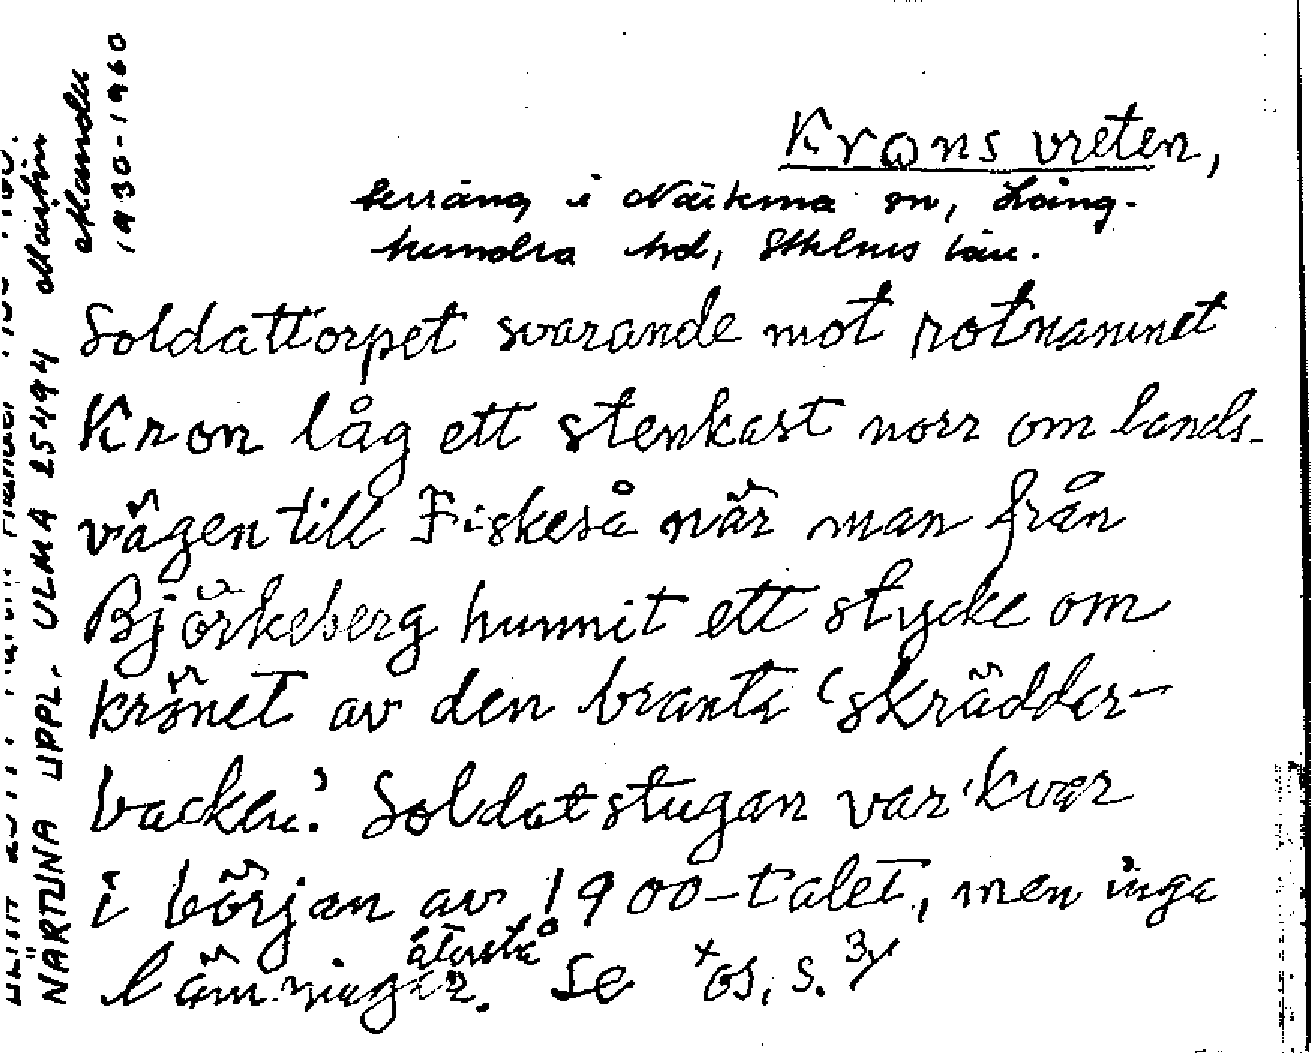 Krons vreten,
terräng i Närtuna sn, Lång-
hundra hd, Sthlms län.
Soldattorpet svarande mot rotnamnet
Kron låg ett stenkast norr om lands-
vägen till Fiskeså när man från
Björkeberg hunnit ett stycke om
krönet av den branta "skrädder-
backen". Soldatstugan var kvar
i början av 1900-talet, men inga
lämningar återstå. Se os, s. 3
NÄRTUNA UPPL. ULMA 25494 Martin
Mander
1930-1960